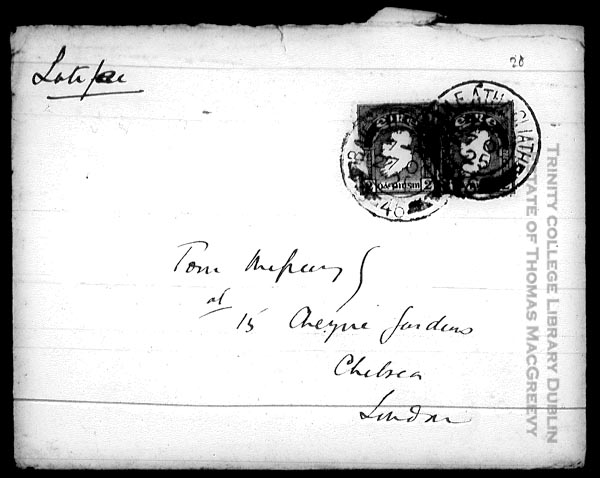 28
Late fee
BAILE ÁTHA CLIATH
25
46
2 2
Tom McGreevy
at
15 Cheyne Gardens
Chelsea
London
TRINITY COLLEGE LIBRARY DUBLIN
ESTATE OF THOMAS MACGREEVY